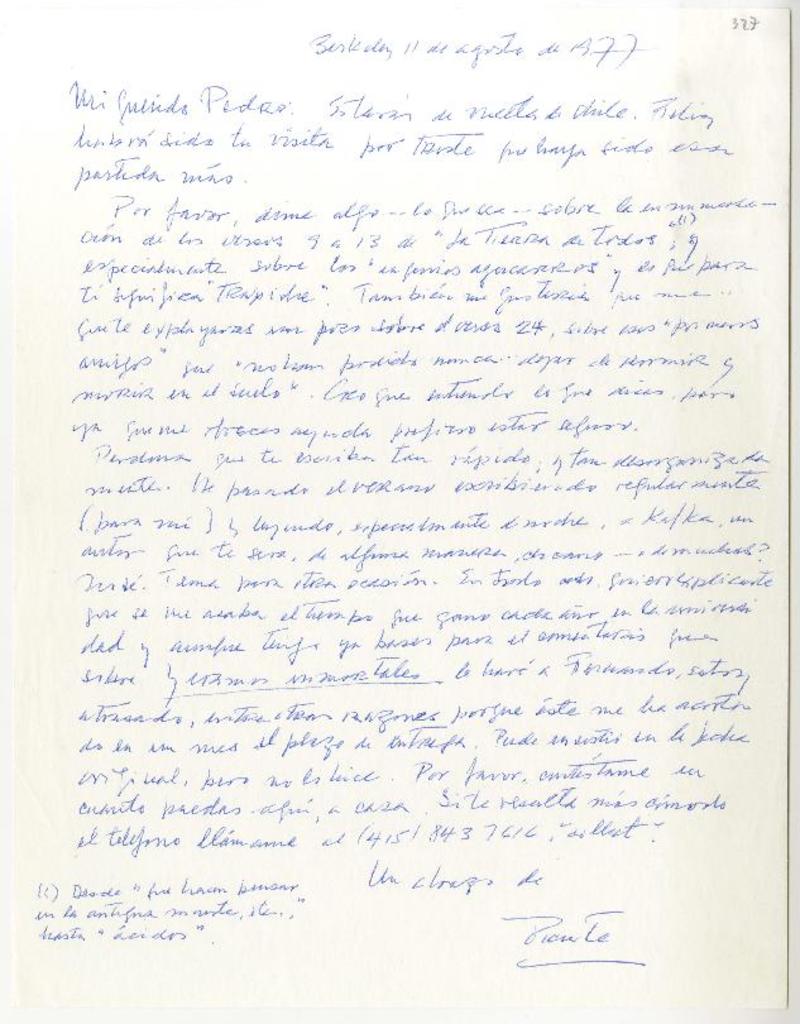 327
Berkeley 11 de agosto de 1977
Mi querido Pedro: Estarás de vuelta de Chile. Feliz
habrá sido tu visita por triste que haya sido esa
partida más.
Por favor, dime algo -- lo que sea -- sobre la enumera-
ción de los versos 9 a 13 de "La Tierra de Todos", (1) y
especialmente sobre los "ingenios azucareros" y lo que para
ti significa "Trapiche". También me gustaría que me
explayaras un poco sobre el verso 24, sobre esos "primeros
amigos" que "no han podido nunca dejar de dormir y
morir en el suelo". Creo que entiendo lo que dices, pero
ya que me ofreces ayuda prefiero estar seguro.
Perdona que te escriba tan rápido, y tan desorganizada
mente. He pasado el verano escribiendo regularmente
(para mí) y leyendo, especialmente de noche, a Kafka, un
autor que te será, de alguna manera, cercano --
No sé. Tema para otra ocasión. En todo caso, quiero explicarte
que se me acaba el tiempo que gano cada año en la universi
dad y aunque tengo ya bases para el comentario que
sobre y éramos inmortales le haré a Fernando, estoy
atrasado, entre otras razones porque éste me ha acorta
do en un mes el plazo de entrega. Pude insistir en la fecha
original, pero no lo hice. Por favor, contéstame en
cuanto puedas aquí, a casa. Si te resulta más cómodo
el teléfono llámame al (415) 843 7616, "collect".
Un abrazo de
(1) Desde "que hacen pensar
en la antigua muerte, etc.,"
hasta "ácidos".